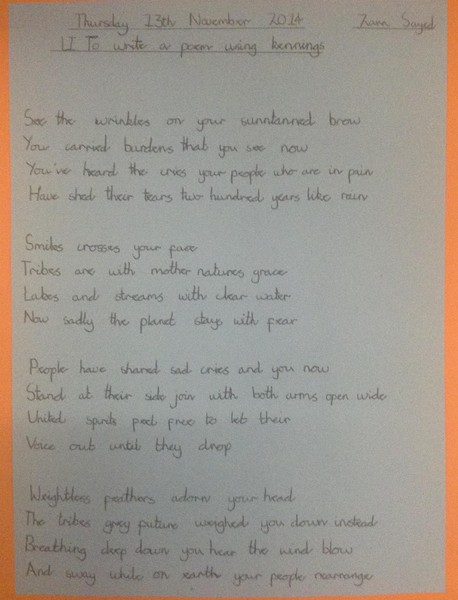 Thursday 13th November 2014 Zara Sayed
LI To write a poem using kennings
See the wrinkles on your sunntanned brow
You carried burdens that you see now
You've heard the cries your people who are in pain
Have shed their tears two hundred years like rain
Smiles crosses your face
Tribes are with mother natures grace
Lakes and streams with clear water
Now sadly the planet stays with fear
People have shared sad cries and you now
Stand at their side join with both arms open wide
United spirits feel free to let their
Voice out until they drop
Weightless feathers adorn your head
The tribes grey future weighed you down instead
Breathing deep down you hear the wind blow
And away while on earth your people rearrange